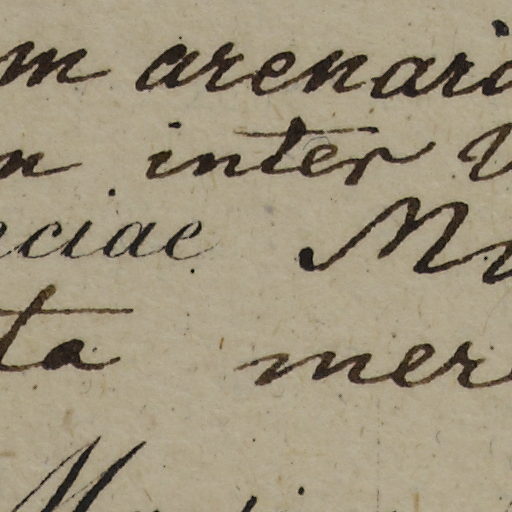 m arenari
n inter
eciae M
ta mer